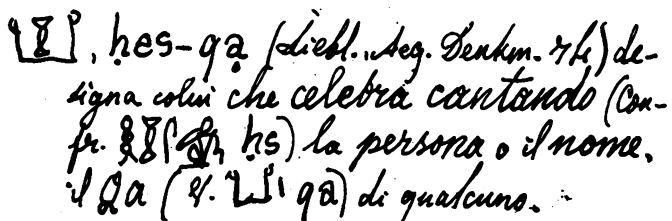 , ḥes-qạ (Liebl., Aeg. Denkm. 74) de-
signa colui che celebra cantando (Con-
fr. ḥs) la persona o il nome,
il Qa (V. qạ) di qualcuno.